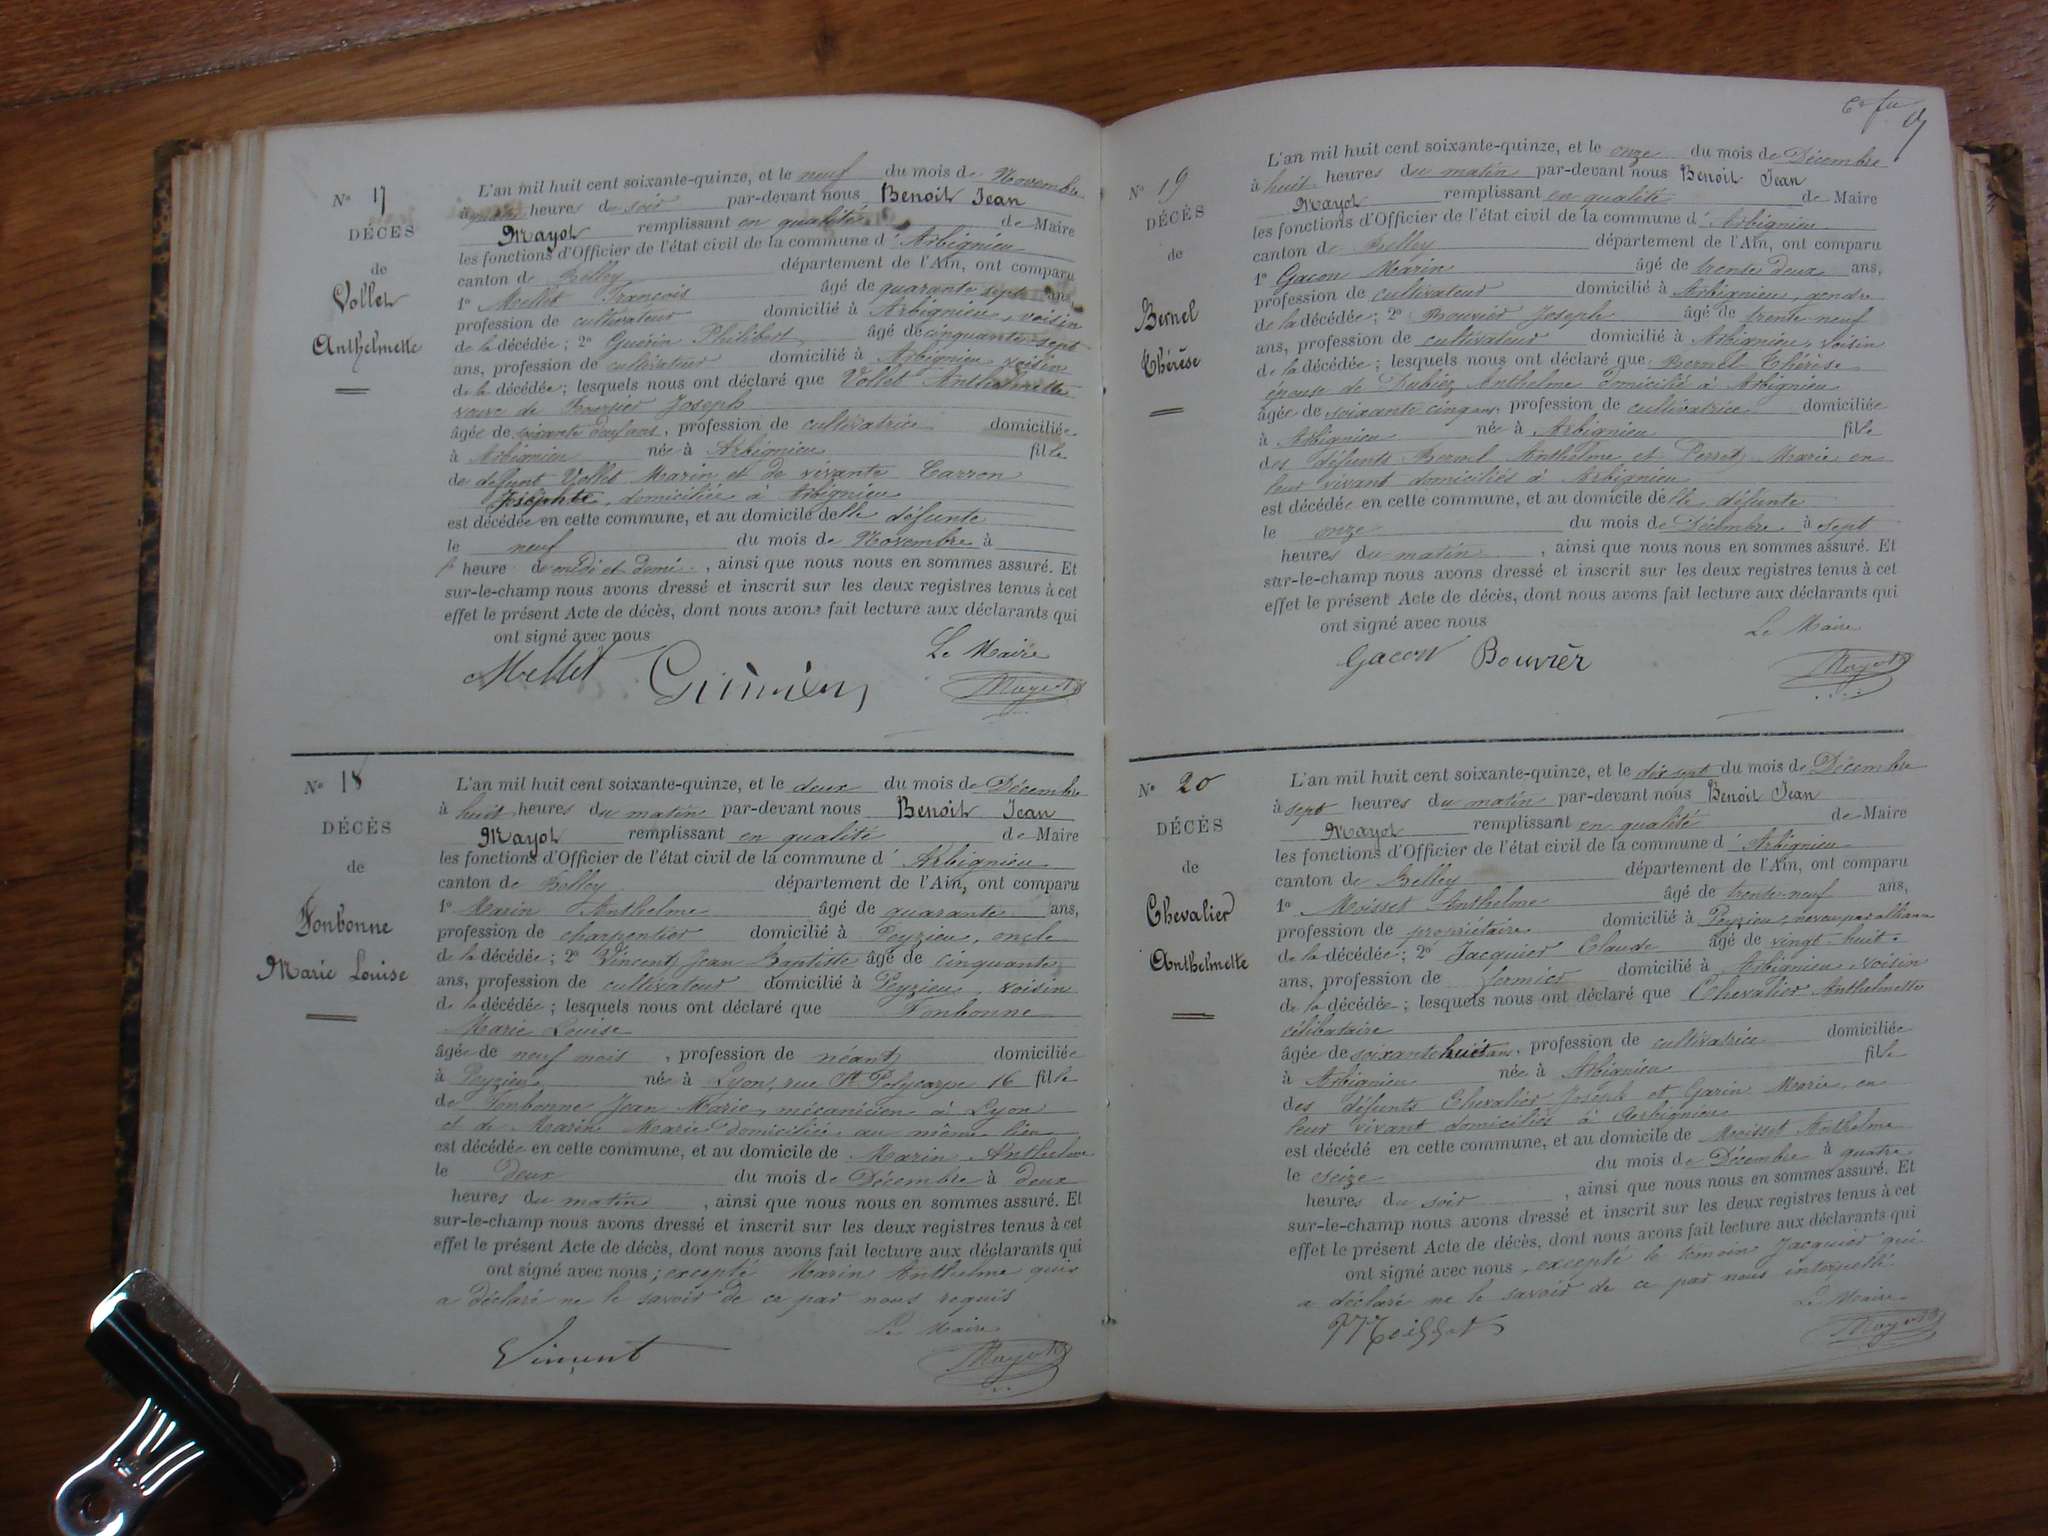 Nº 17
DÉCÈS
de
Vollet
Anthelmette
L'an mil huit cent soixante-quinze, et le neuf du mois de Novembre
à heures de soir par-devant nous Benoit Jean
Mayot remplissant en qualité de Maire
les fonctions d'Officier de l'état civil de la commune d' Arbignieu
canton de Belley département de l'Ain, ont comparu
1º Mellet François âgé de quarante sept ans,
profession de cultivateur domicilié à Arbignieu, voisin
de la décédée; 2º Guérin Philibert âgé de cinquante-sept
ans, profession de cultivateur domicilié à Arbignieu, voisin
de la décédée; lesquels nous ont déclaré que Vollet Anthelmette
veuve de Joseph
âgée de soixante ans, profession de cultivatrice domiciliée
à Arbignieu née à Arbignieu fille
de défunt Vollet Marin et de vivante Carron
Josephte, domiciliée à Arbignieu
est décédée en cette commune, et au domicile de lle défunte
le neuf du mois de Novembre à
heure de midi et demi, ainsi que nous nous en sommes assuré. Et
sur-le-champ nous avons dressé et inscrit sur les deux registres tenus à cet
effet le présent Acte de décès, dont nous avons fait lecture aux déclarants qui
ont signé avec nous
Le Maire
Mellet Mayot
Nº 18
DÉCÈS
de
Fonbonne
Marie Louise
L'an mil huit cent soixante-quinze, et le deux du mois de Décembre
à huit heures du matin par-devant nous Benoit Jean
Mayot remplissant en qualité de Maire
les fonctions d'Officier de l'état civil de la commune d' Arbignieu
canton de Belley département de l'Ain, ont comparu
1º Marin Anthelme âgé de quarante ans,
profession de charpentier domicilié à Peyzieu, oncle
de la décédée; 2º Vincent Jean Baptiste âgé de cinquante
ans, profession de cultivateur domicilié à Peyzieu, voisin
de la décédée; lesquels nous ont déclaré que Fonbonne
Marie Louise
âgée de neuf mois, profession de néant domiciliée
à Peyzieu née à Lyon, rue St Polycarpe 16 fille
de Fonbonne Jean Marie, mécanicien à Lyon
et de Marin Marie domiciliée au même lieu
est décédée en cette commune, et au domicile de Marin Anthelme
le deux du mois de Décembre à deux
heures du matin, ainsi que nous nous en sommes assuré. Et
sur-le-champ nous avons dressé et inscrit sur les deux registres tenus à cet
effet le présent Acte de décès, dont nous avons fait lecture aux déclarants qui
ont signé avec nous; excepté Marin Anthelme qui
a déclaré ne le savoir de ce par nous requis
Le Maire
Vincent Mayot
Nº 19
DÉCÈS
de
Bernel
Thérèse
L'an mil huit cent soixante-quinze, et le onze du mois de Décembre
à huit heures du matin par-devant nous Benoit Jean
Mayot remplissant en qualité de Maire
les fonctions d'Officier de l'état civil de la commune d' Arbignieu
canton de Belley département de l'Ain, ont comparu
1º Gacon Marin âgé de trente deux ans,
profession de cultivateur domicilié à Arbignieu, gendre
de la décédée; 2º Bouvier Joseph âgé de trente-neuf
ans, profession de cultivateur domicilié à Arbignieu, voisin
de la décédée; lesquels nous ont déclaré que Bernel Thérèse
épouse de Anthelme domicilié à Arbignieu
âgée de soixante cinq ans, profession de cultivatrice domiciliée
à Arbignieu née à Arbignieu fille
des défunts Bernel Anthelme et Perret Marie en
leur vivant domiciliés à Arbignieu
est décédée en cette commune, et au domicile de lle défunte
le onze du mois de Décembre à sept
heures du matin, ainsi que nous nous en sommes assuré. Et
sur-le-champ nous avons dressé et inscrit sur les deux registres tenus à cet
effet le présent Acte de décès, dont nous avons fait lecture aux déclarants qui
ont signé avec nous
Le Maire
Gacon Bouvier Mayot
Nº 20
DÉCÈS
de
Chevalier
Anthelmette
L'an mil huit cent soixante-quinze, et le dix sept du mois de Décembre
à sept heures du matin par-devant nous Benoit Jean
Mayot remplissant en qualité de Maire
les fonctions d'Officier de l'état civil de la commune d' Arbignieu
canton de Belley département de l'Ain, ont comparu
1º Moisset Anthelme âgé de trente-neuf ans,
profession de propriétaire domicilié à Peyzieu, neveu par alliance
de la décédée; 2º Jacquier Claude âgé de vingt-huit
ans, profession de fermier domicilié à Arbignieu, voisin
de la décédée; lesquels nous ont déclaré que Chevalier Anthelmette
célibataire
âgée de soixante huit ans, profession de cultivatrice domiciliée
à Arbignieu née à Arbignieu fille
des défunts Chevalier Joseph et Garin Marie, en
leur vivant domiciliés à Arbignieu
est décédé en cette commune, et au domicile de Moisset Anthelme
le seize du mois de Décembre à quatre
heures du soir, ainsi que nous nous en sommes assuré. Et
sur-le-champ nous avons dressé et inscrit sur les deux registres tenus à cet
effet le présent Acte de décès, dont nous avons fait lecture aux déclarants qui
ont signé avec nous, excepté le témoin Jacquier qui
a déclaré ne le savoir de ce par nous interpellé
Le Maire
Moisset Mayot